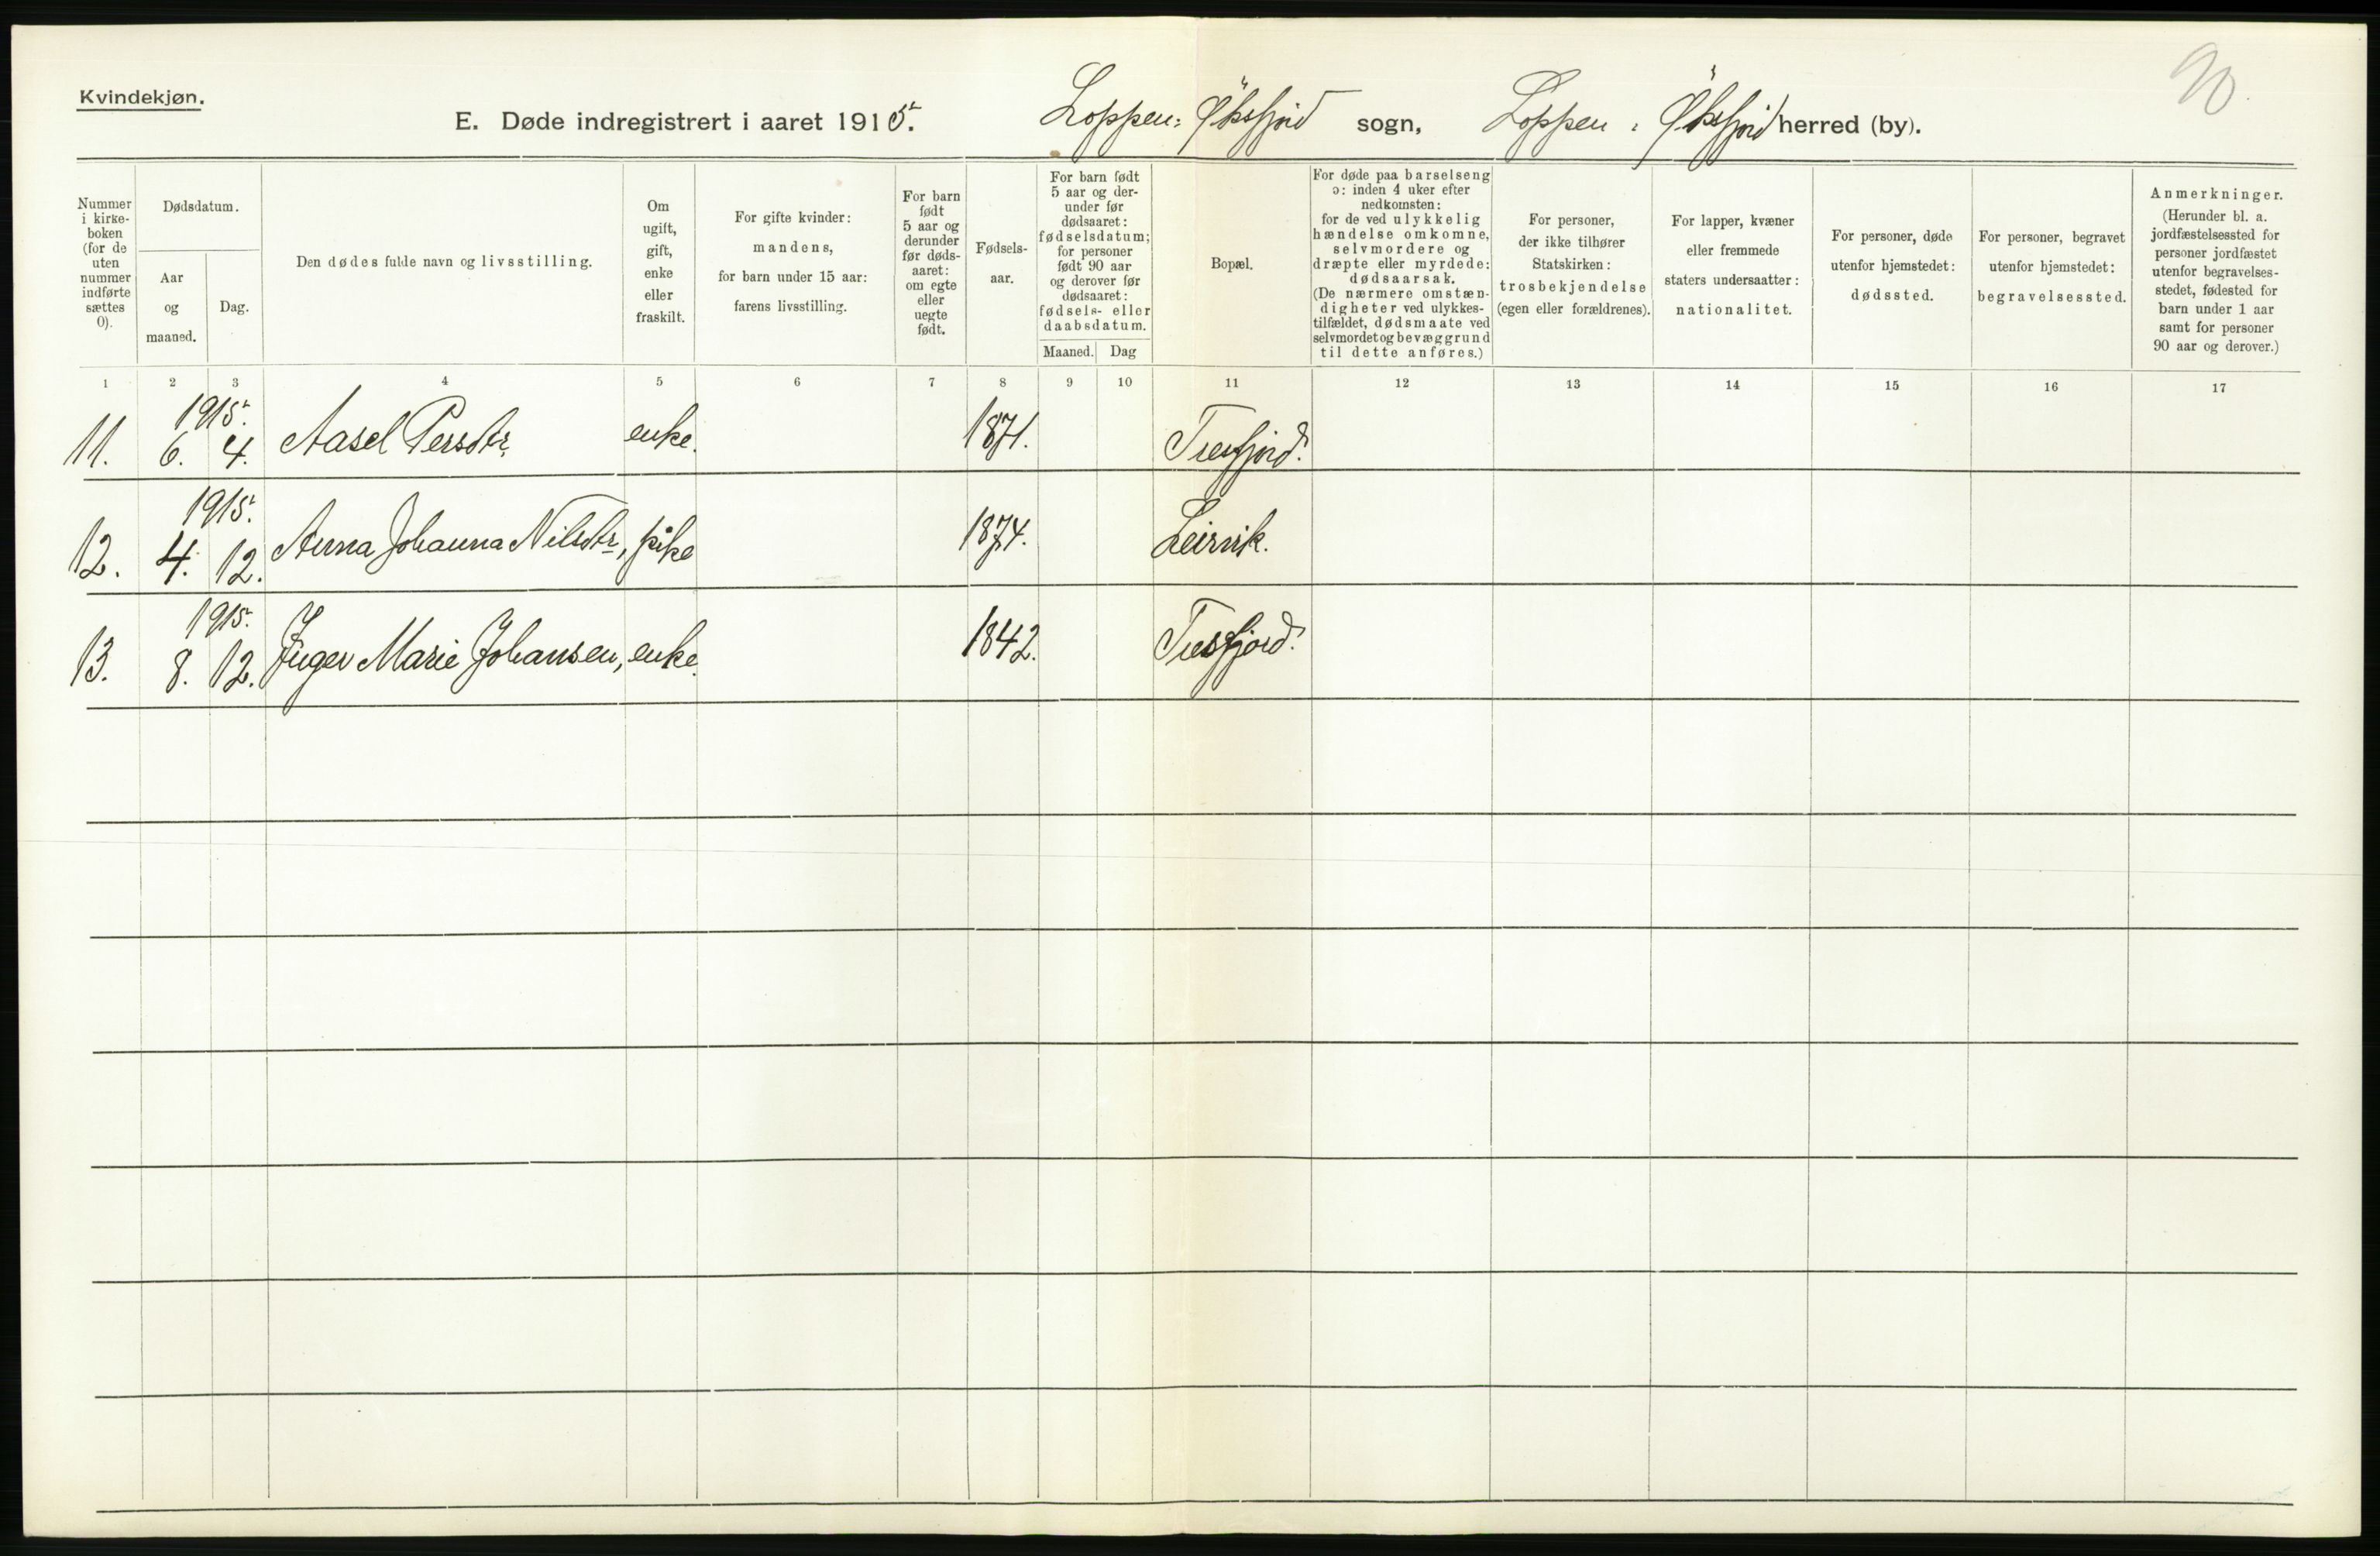 Kvindekjøn.
90.
E. Døde indregistrert i aaret 1915. Loppen: Øksfjord sogn, Loppen : Øksfjord herred (by).
Nummer
i kirke-
boken
(for de
uten
nummer
indførte
sættes
0).
Dødsdatum.
Aar
og
maaned.
Dag.
Den dødes fulde navn og livsstilling.
Om
ugift,
gift,
enke
eller
fraskilt.
For gifte kvinder:
mandens,
for barn under 15 aar:
farens livsstilling.
For barn
født
5 aar og
derunder
før døds-
aaret:
om egte
eller
uegte
født.
Fødsels-
aar.
For barn født
5 aar og der-
under før
dødsaaret:
fødselsdatum;
for personer
født 90 aar
og derover før
dødsaaret:
fødsels- eller
daabsdatum.
Maaned. Dag
Bopæl.
For døde paa barselseng
ɔ: inden 4 uker efter
nedkomsten:
for de ved ulykkelig
hændelse omkomne,
selvmordere og
dræpte eller myrdede:
dødsaarsak.
(De nærmere omstæn-
digheter ved ulykkes-
tilfældet, dødsmaate ved
selvmordet og bevæggrund
til dette anføres.)
For personer,
der ikke tilhører
Statskirken:
trosbekjendelse
(egen eller forældrenes).
For lapper, kvæner
eller fremmede
staters undersaatter:
nationalitet.
For personer, døde
utenfor hjemstedet:
dødssted.
For personer, begravet
utenfor hjemstedet:
begravelsessted.
Anmerkninger.
(Herunder bl. a.
jordfæstelsessted for
personer jordfæstet
utenfor begravelses-
stedet, fødested for
barn under 1 aar
samt for personer
90 aar og derover.)
1 2 3 4 5 6 7 8 9 10 11 12 13 14 15 16 17
1915.
11. 6. 4. Aasel Persdtr. enke. 1871. Tresfjord.
1915.
12. 4. 12. Anna Johanna Nilsdtr, pike 1874. Leirvik.
1915.
13. 8. 12. Inger Marie Johansen, enke. 1842. Tresfjord.